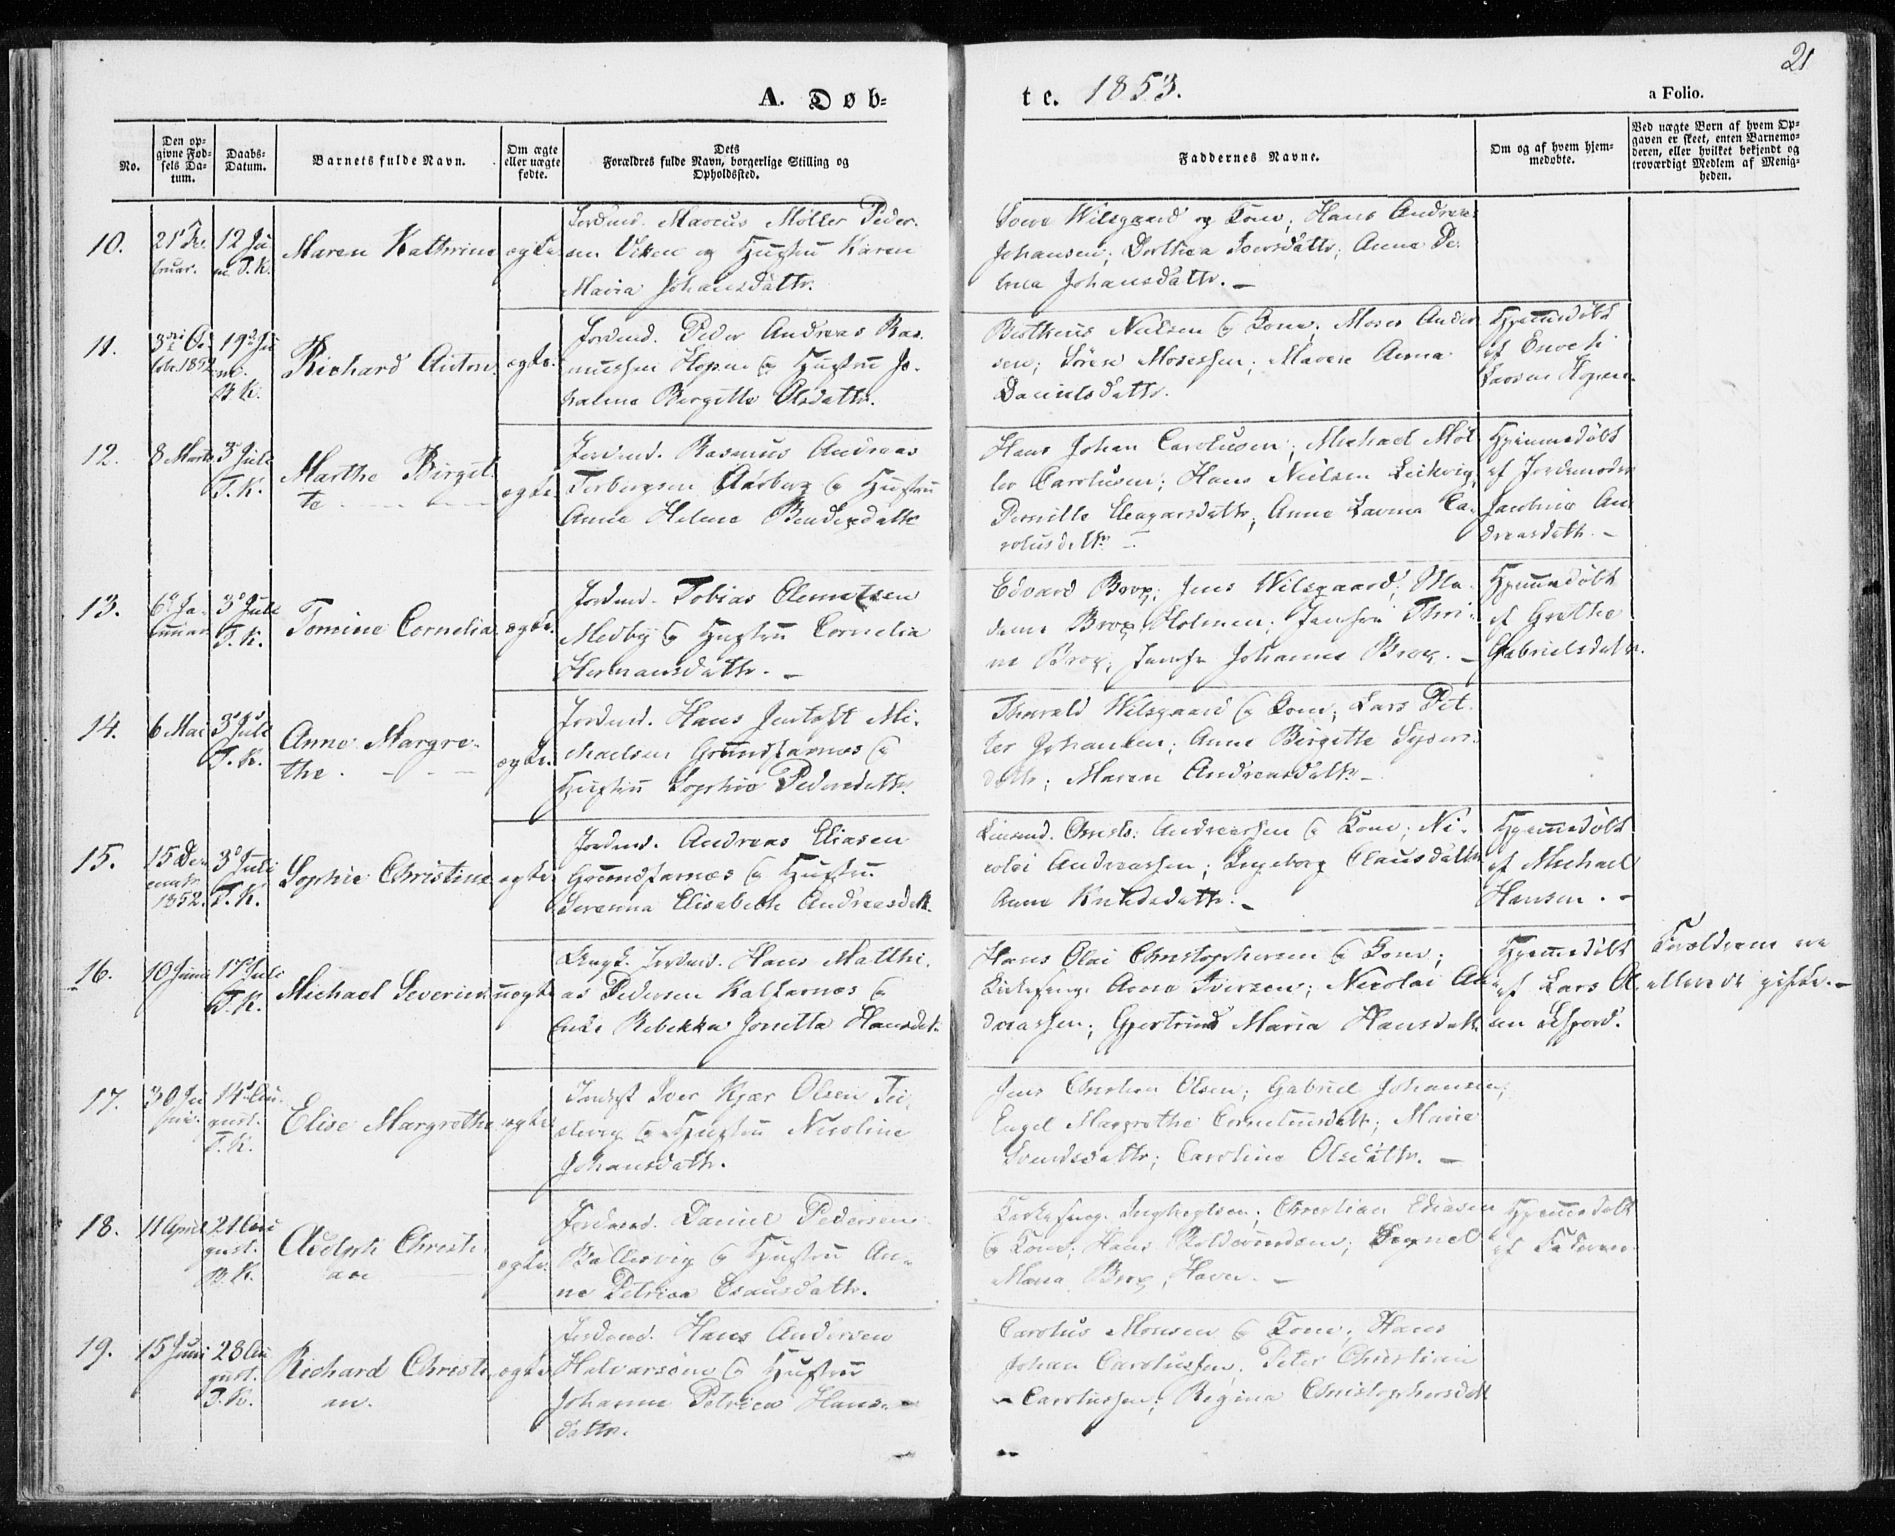 21
A. Døb-
te. 1853.
a Folio.
No.
Den op-
givne Fød-
sels Da-
tum.
Daabs-
Datum.
Barnets fulde Navn.
Om ægte
eller uægte
fødte.
Dets
Forældres fulde Navn, borgerlige Stilling og
Opholdssted.
Faddernes Navne.
Om og af hvem hjem-
medøbte.
Ved uægte Born af hvem Op-
gaven er skeet, enten Barnemo-
deren, eller hvilket bekjendt og
troværdigt Medlem af Menig-
heden.
10.
12 Ju
Maren Kathrine
ægte
Marcus Møller Peder-
sen Viken og Hustru Karen
Maria Johansdattr.
Wilsgaard og Kone; Hans Andreas
Johansen; Dorthea Iversdattr; Anna Pe-
Johansdattr. —
11.
19 Ju
B. K.
Richard Anton.
ægte.
Jordmd. Peder Andreas Ras-
mussen Hopen & Hustru Jo-
Bergitte Olsdattr.
Nielsen & Kone; Moses Ander-
sen; Sören Mosessen; Maren Anna
Danielsdattr.
Hjemmedøbt
af Enoch
Hopen
12.
8 Marts
3 Juli
T. K.
Marthe Birgit-
te
ægte
Jordmd. Rasmus Andreas
Torbergsen Aarberg & Hustru
Anne Helene Bendixdattr
Hans Johan Carolusen; Michael Møl-
ler Carolusen; Hans Nielsen Leikvig;
Pernille Eleazarsdattr; Anne Lavina Ca-
rolusdattr.
Hjemmedøbt
af Jordmoder
An-
dreasdattr. —
13.
6 Ja-
nuar
3 Juli
T. K.
Tomine Cornelia
ægte.
Jordmd. Tobias Clemetsen
Medby & Hustru Cornelia
Hermansdattr. —
Edvard Brox; Jens Wilsgaard; Ma-
dame Brox, Holmen; Jomfru Thri-
ne Brox; Jomfr Johanne Brox. —
Hjemmedøbt
af Grethe
Gabrielsdatr.
14.
6 Mai
3 Juli
T. K.
Anne Margre-
the
ægte.
Jordmd. Hans Jentoft Mi-
chaelsen Grundfarnes &
Hustru Sophie Pedersdattr.
Thorvald Wilsgaard & Kone; Lars Pet-
ter Johansen; Anne Birgitte
dattr; Maren Andreasdattr —
15.
15 De-
cembr
1852.
3 Juli
T. K.
Sophie Christine
ægte
Jordmd. Andreas Eliasen
Grundfarnes & Hustru
Serenna Elisabeth Andreasdatt.
Christ. Andreassen & Kone; Ni-
colai Andreassen; Ingeborg Clausdattr
Anne Knudsdattr. —
Hjemmedøbt
af Michael
Hansen. —
16.
10 Juni
17 Juli
T. K.
Michael Severin
uægte
Ungk. Jordmd. Hans Matthi-
as Pedersen Kalfarnes &
Rebekka Jonetta Hansdatr.
Hans Olai Christophersen & Kone;
Arne Iversen; Nicolai An-
dreassen; Gjertrud Maria Hansdattr
Hjemmedøbt
af Lars Ol-
sen
Forældrene ere
allerede gifte. —
17.
30 Ju
14 Au-
gust.
T. K.
Elise Margrethe
ægte
Iver Kjær Olsen
& Hustru Nicoline
Johansdattr.
Jens Christian Olsen; Gabriel Johansen;
Engel Margrethe Corneliusdattr; Marie
Svendsdattr; Caroline Olsdattr. —
18.
11 April
21 Au
gust.
B. K.
Adolph Christi
an
ægte.
Jordmd. Daniel Pedersen
Ballesvig & Hustru An-
ne Petrica Esausdattr.
Christian Eliasen
& Kone; Hans
Maria Brox, Havn. —
Hjemmedøbt
af Faderen
19.
15 Juni
28 Au
gust.
T. K.
Richard Christi
an.
ægte
Jordmd. Hans Andersen
& Hustru
Johanne Petrica Hans-
dattr.
Carolus Monsen & Kone; Hans
Johan Carolussen; Peter Christian
Carolussen; Regina Christophersdatt